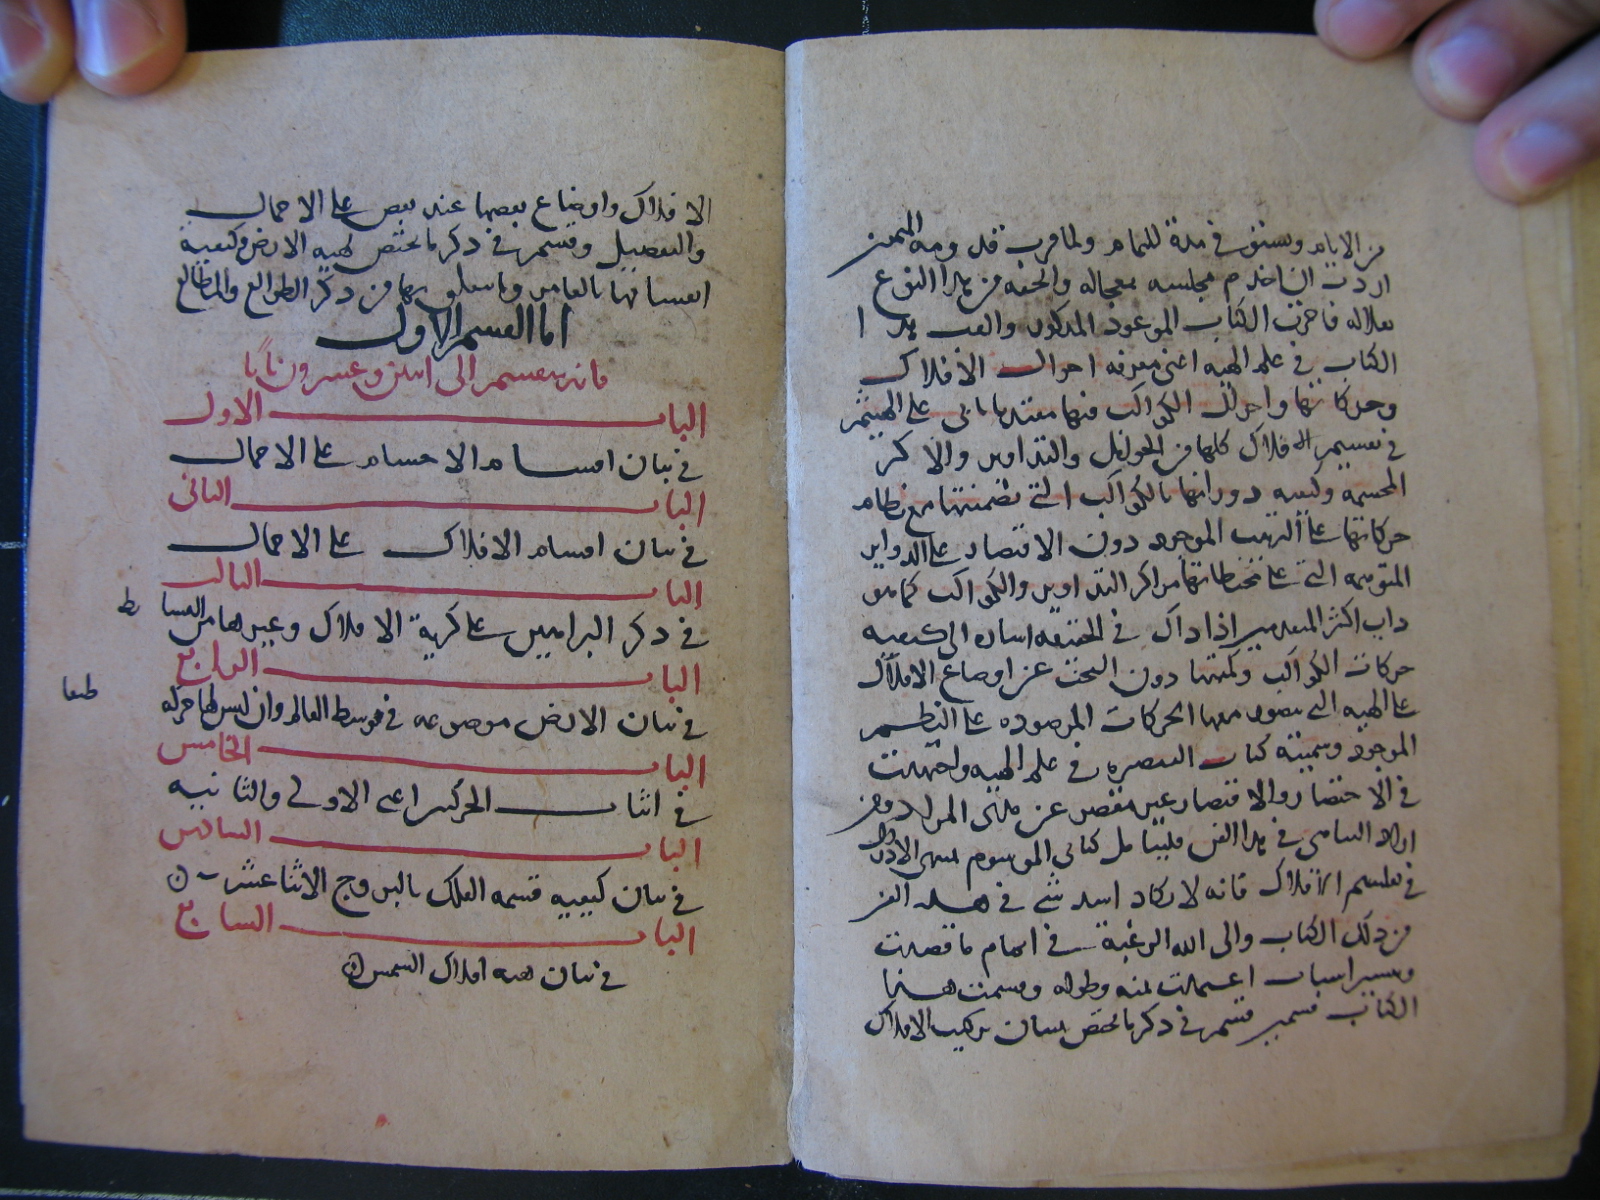 من الايام ويستوفى في مدة للتمام ولما قرب قدومه
اردت ان اخدم مجلسه بعجاله والحفه من هذا النوع
بعلاله فاحرت الكتاب الموعود المذكور والفت هذا
الكتاب في علم الهيه اعنى معرفه احوال الافلاك
وحركاتها واحوال الكواكب فيها مقتديا بابى على الهيثم
في تقسيم الافلاك كلها من الحوامل والتداوير والاكر
المجسمه وكيفيه دورانها بالكواكب التى تضمنتها مع نظام
حركاتها على الترتيب الموجود دون الاقتصار على الدواير
المتوهمه التى على محيطاتها مراكز التداوير والكواكب كما هو
داب اكثر المتقدمين اذ ذاك في الحقيقه اساره الى كيفيه
حركات الكواكب وكميتها دون البحث عن اوضاع الافلاك
على الهيه التى يتصور معها الحركات المرصوده على النظم
الموجود وسميته كتاب التبصره في علم الهيه واجتهدت
في الاختصار والاقتصار غير مقصر عن المراد ومن
اراد التناهى في هذا الفن فليتامل كتابى الموسوم بمنتهى الادراك
في تقاسيم الافلاك فانه لا يكاد شى في هذا الفن
من ذلك الكتاب والى الله الرغبة في اتمام ما قصدت
وتيسير اسباب اعتمدت منه وطوله وقسمت هذا
الكتاب قسمين قسم في ذكر ما يختص ببيان تركيب الافلاك
الافلاك واوضاع بعضها عند بعض على الاجمال
والتفصيل وقسم في ذكر ما يختص بهيه الارض وكيفية
انقسامها بالعامر وما يتعلق بها من ذكر الطوالع والمطالع
اما القسم الاول
فانه ينقسم الى اثنين وعشرون بابا
الباب الاول
في بيان اقسام الاجسام على الاجمال
الباب الثانى
في بيان اقسام الافلاك على الاجمال
الباب الثالث
في ذكر البراهين على كرية الافلاك وغيرها من البسا
يط
الباب الرابع
في بيان الارض موضوعه في وسط العالم وان ليس لها حركه
طبعا
الباب الخامس
في اثبات الحركتين اعنى الاولى والثانيه
الباب السادس
في بيان كيفيه قسمه الفلك بالبروج الاثنا عشر
الباب السابع
في بيان هيه افلاك الشمس